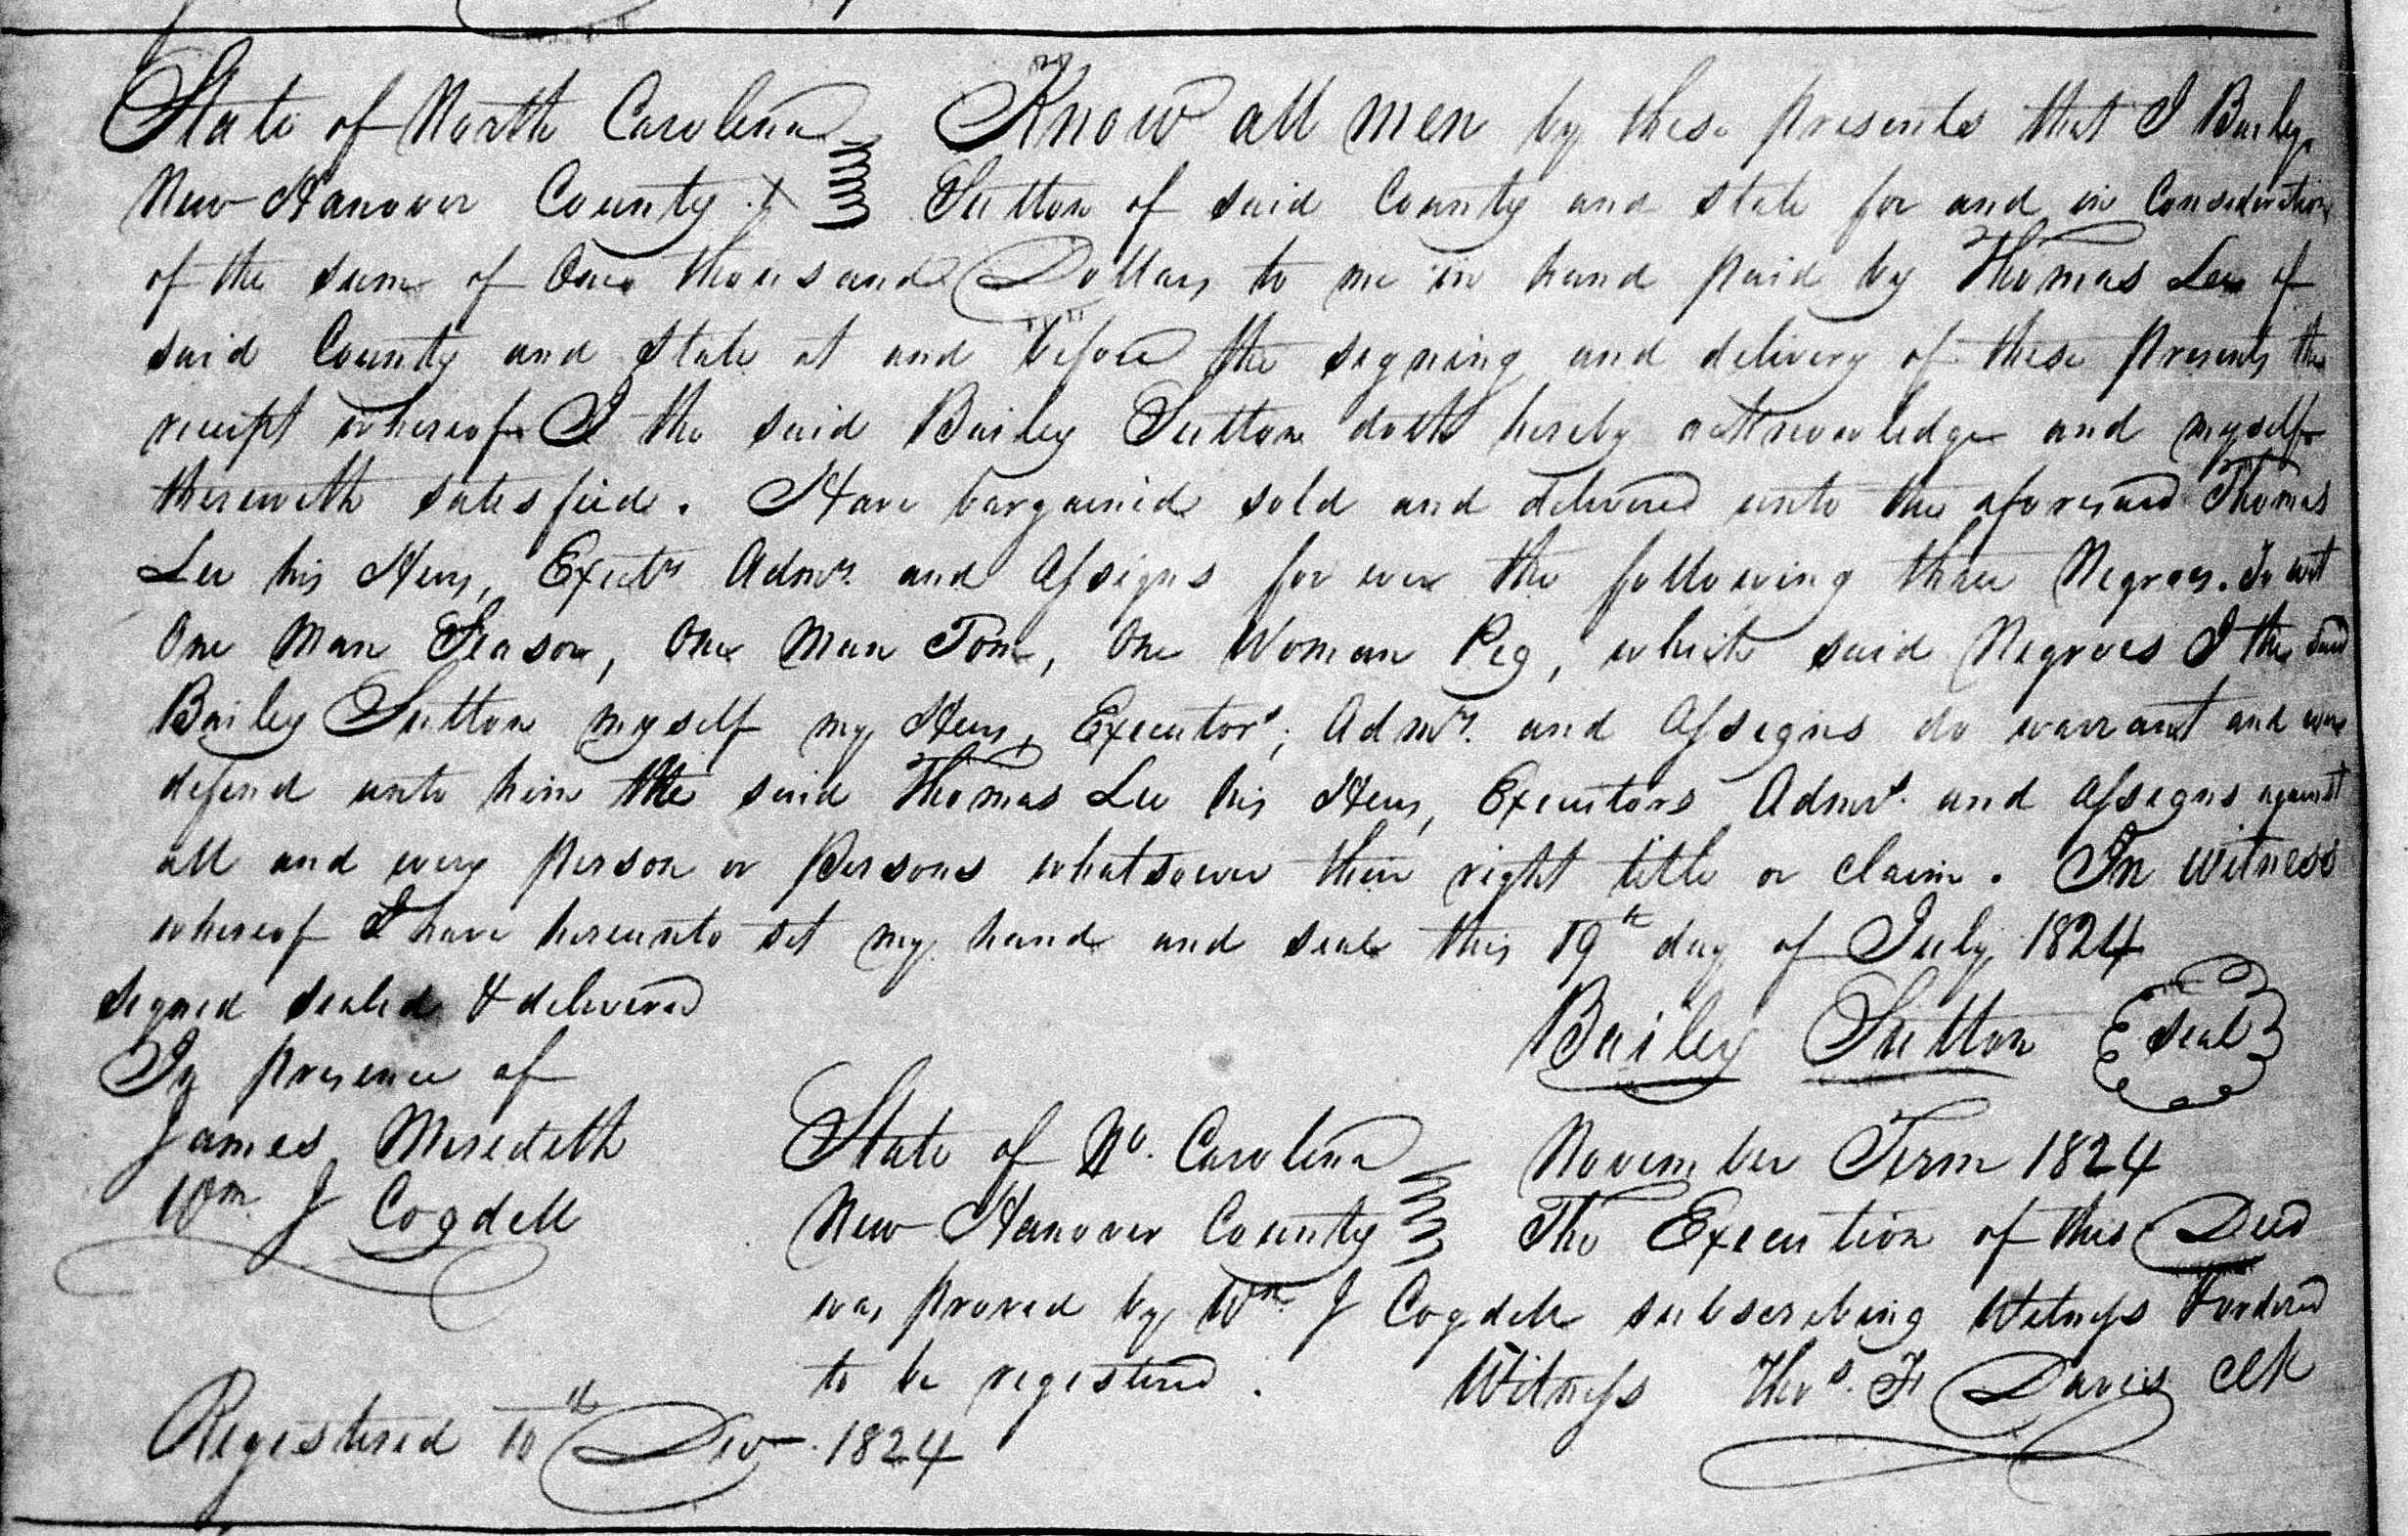 State of North Carolina Know all men by these presents that I Bailey
New Hanover County Sutton of said County and State for and in Consideration
of the sum of One thousand Dollars to me in hand paid by Thomas Lee of
said County and State at and before the signing and delivery of these presents the
receipt whereof I the said Bailey Sutton doth hereby acknowledge and myself
therewith satisfied. Have bargained sold and delivered unto the aforesaid Thomas
Lee his Heirs, Exectrs Admrs. and Assigns for ever the following three Negroes. To wit
One Man Season, One Man Tom, One Woman Peg, which said Negroes I the said
Bailey Sutton myself my Heirs, Executors, Admrs. and Assigns do warrant and ever
defend unto him the said Thomas Lee his Heirs, Executors Admrs. and Assigns against
all and every person or Persons whatsoever their right title or claim. In witness
whereof I have hereunto set my hand and seal this 19th day of July 1824
signed sealed & delivered
Bailey Sutton Seal
In presence of
James Meredeth
Wm. J Cogdell
State of No. Carolina November Term 1824
New Hanover County The Execution of this Deed
was proved by Wm. J Cogdell subscribing Witness & ordered
to be registered. Witness Thos. F Davis Clk
Registered 10th Dec. 1824